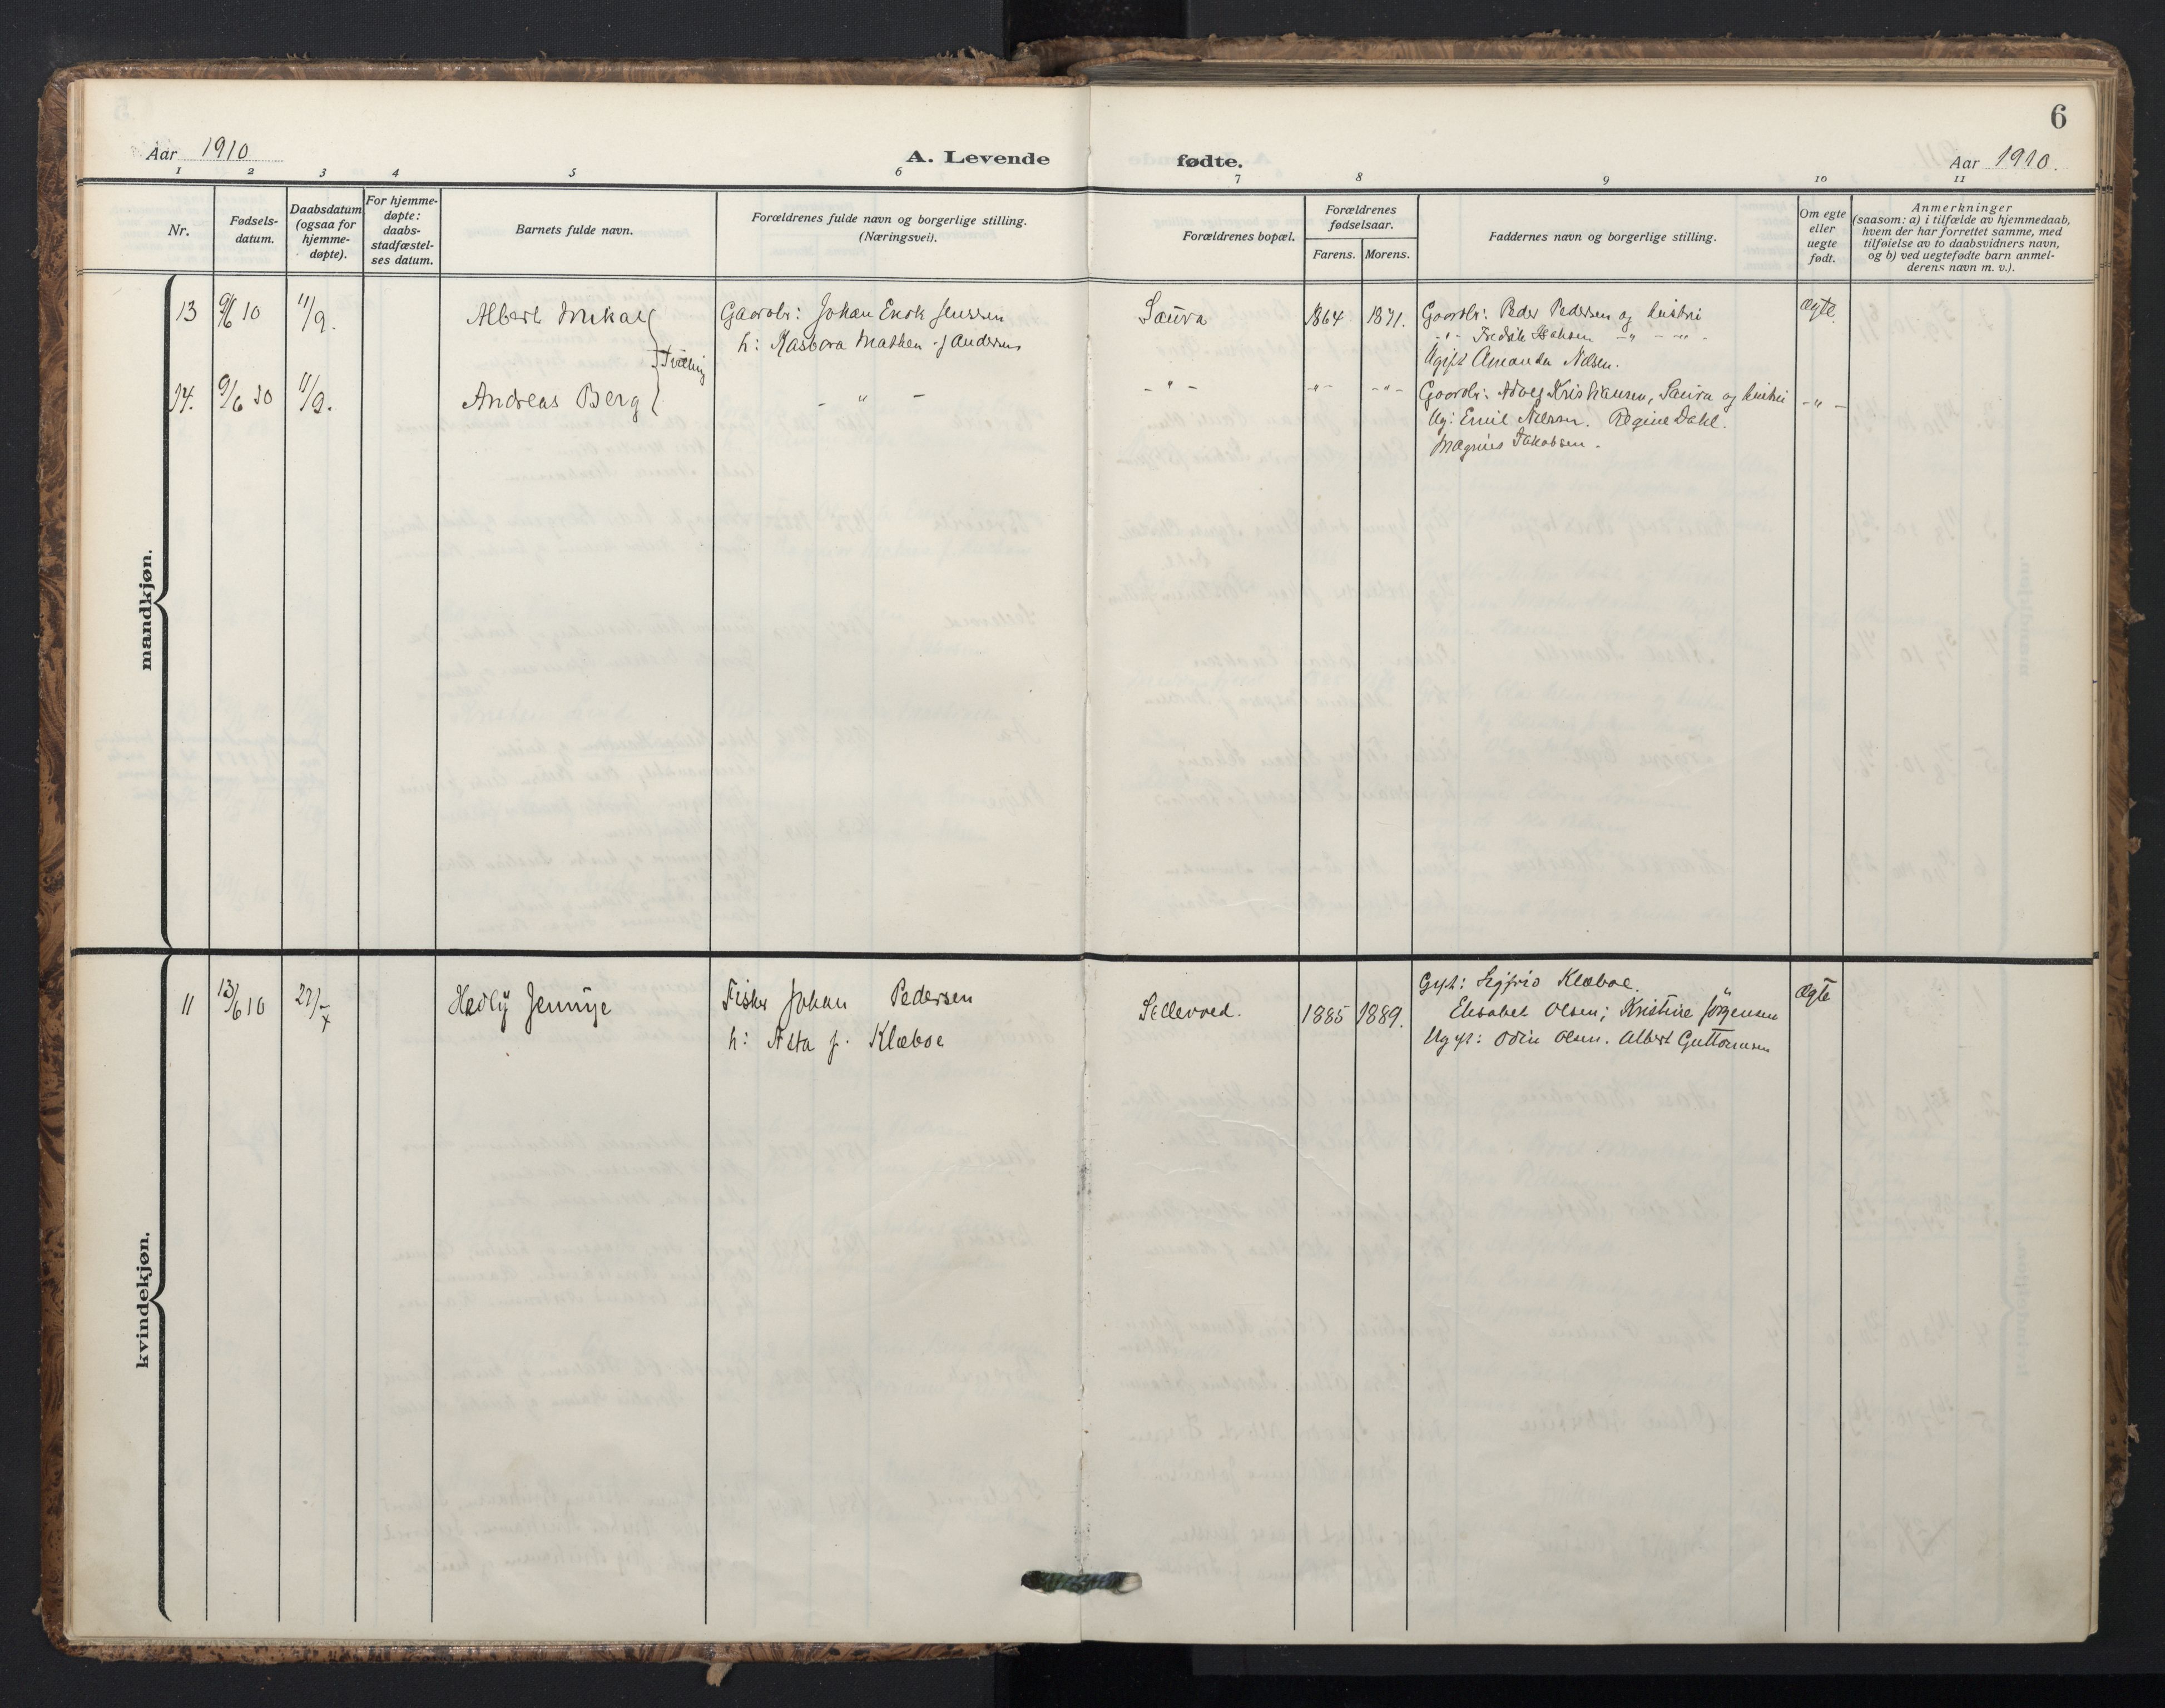 6
Aar 1910
A. Levende
fødte.
Aar 1910.
1 2 3 4 5 6 7 8 9 10 11
Nr.
Fødsels-
datum.
Daabsdatum
(ogsaa for
hjemme-
døpte).
For hjemme-
døpte:
daabs-
stadfæstel-
ses datum.
Barnets fulde navn.
Forældrenes fulde navn og borgerlige stilling.
(Næringsvei).
Forældrenes bopæl.
Forældrenes
fødselsaar.
Farens. Morens.
Faddernes navn og borgerlige stilling.
Om egte
eller
uegte
født.
Anmerkninger
(saasom: a) i tilfælde av hjemmedaab,
hvem der har forrettet samme, med
tilføielse av to daabsvidners navn,
og b) ved uegtefødte barn anmel-
derens navn m. v.).
mandkjøn.
13 9/6 10 11/9. Albert Mikal Gaardbr: Johan Enok Jenssen Saura 1864 1871. Gaardbr: Peder Pedersen og hustru Ægte
h: Mathea f Anders
-"- Fredrik -"- -"-
Ugift Amanda Nilsen.
Tvilling
14. 9/6 10 11/9. Andreas Berg - " - - " - -"- -"- Gaardbr: Adolf Kristiansen, Saura og hustru -"-
Ug: Emil Nilssen. Regine Dahl.
Magnus Jakobsen.
kvindekjøn.
11 13/6 10 Hedly Jennye Fisker Johan Pedersen 1885 1889. Gift: Sigfrid Klæboe. Ægte
h: Asta f. Klæboe
Elisabet Olsen; Kristine Jørgensen
Ugift: Odin Olsen. Albert Guttormsen